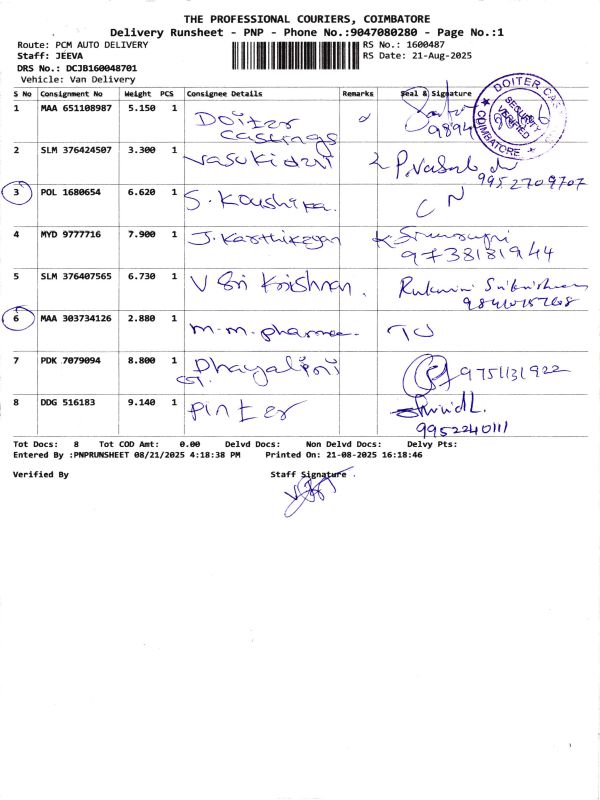 THE PROFESSIONAL COURIERS, COIMBATORE
Delivery Runsheet - PNP - Phone No.:9047080280 - Page No.:1
Route: PCM AUTO DELIVERY
RS No.: 1600487
Staff: JEEVA
RS Date: 21-Aug-2025
DRS No.: DCJB160048701
Vehicle: Van Delivery
S No Consignment No Weight PCS Consignee Details Remarks Seal & Signature
DOITER CAS
SECURITY
VERIFIED
COIMBATORE
1 MAA 651108987 5.150 1 Doiter
castings
9894
2 SLM 376424507 3.300 1 Vasukidevi
9952709707
3 POL 1680654 6.620 1 S. Koushika. CN
4 MYD 9777716 7.900 1 J. Karthikeyan
9738181944
5 SLM 376407565 6.730 1 V Sri Krishnan. Rukmini Srikrishnan
6 MAA 303734126 2.880 1 m.m.pharma
7 PDK 7079094 8.800 1 Dhayalini 9751131922
G.
8 DDG 516183 9.140 1 Pinter
9952240111
Tot Docs: 8 Tot COD Amt: 0.00 Delvd Docs: Non Delvd Docs: Delvy Pts:
Entered By :PNPRUNSHEET 08/21/2025 4:18:38 PM Printed On: 21-08-2025 16:18:46
Verified By Staff Signature